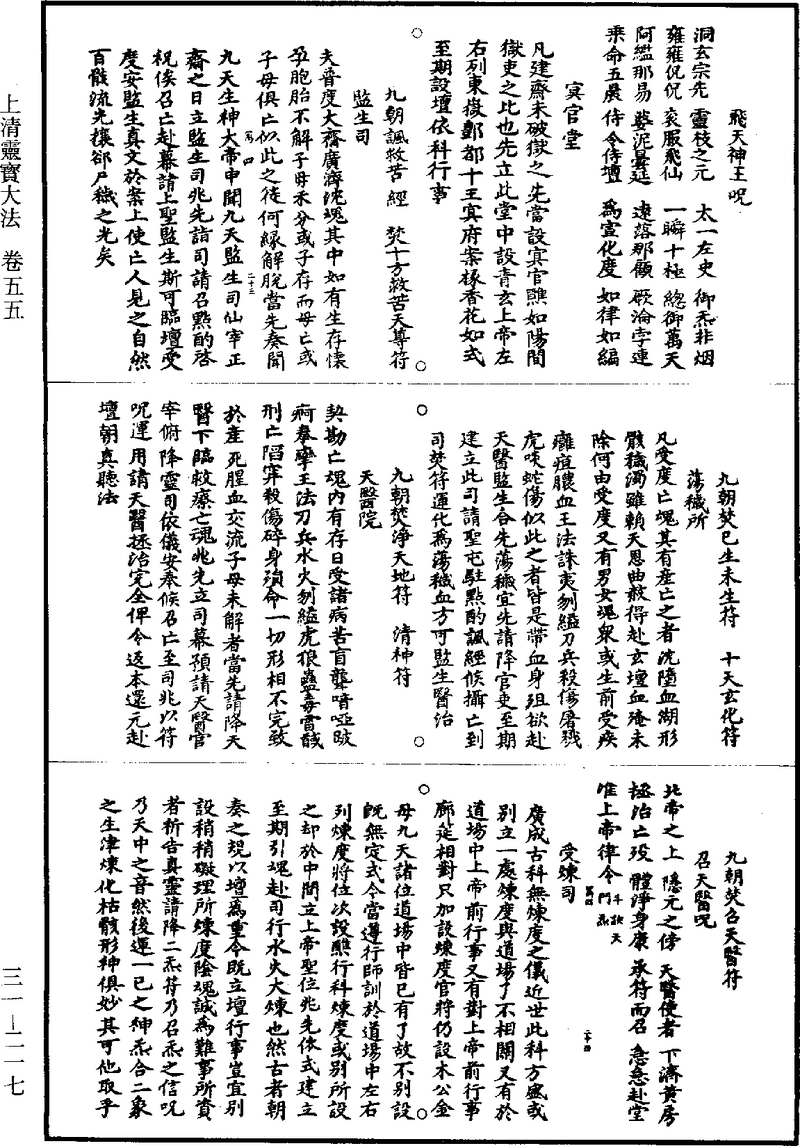 上清靈寶大法　卷五五
三一—二一七
飛天神王呪
洞玄宗先　靈枝之元　太一左史　御炁非烟
雍雍侃侃　衮服飛仙　一瞬十極　總御萬天
阿䌫那易　婆泥臺延　逮落那顧　厥淪孛連
乘命五晨　侍令侍壇　爲宣化度　如律如編
冥官堂
凡建齋未破獄之先當設冥官醮如陽間
獄吏之比也先立此堂中設青玄上帝左
右列東嶽酆都十王冥府案椽香花如式
至期設壇依科行事
九朝諷救苦經　焚十方救苦天尊符
監生司
夫普度大齋廣濟沈魂其中如有生存懷
孕胞胎不解子母未分或子存而母亡或
子母俱亡似此之徒何緣解脫當先奏聞
九天生神大帝申聞九天監生司仙宰正
齋之日立監生司兆先詣司請召點酌啓
祝俟召亡赴幕請上聖監生斯可臨壇受
度安監生真文於案上使亡人見之自然
百骸流光攘郤尸穢之光矣
九朝焚已生未生符　十天玄化符
蕩穢所
凡受度亡魂其有產亡之者沈墮血湖形
骸穢濁雖賴天恩曲赦得赴玄壇血淹未
除何由受度又有男女魂衆或生前受疾
癰疽膿血王法誅夷刎縊刀兵殺傷屠戮
虎咬蛇傷似此之者皆是帶血身殂欲赴
天醫監生合先蕩穢宜先請降官吏至期
建立此司請聖屯駐點酌諷經候攝亡到
司焚符運化爲蕩穢血方可監生醫治
九朝焚淨天地符　清神符
天醫院
契勘亡魂內有存日受諸病苦盲聾喑啞跛
痾拳攣王法刀兵水火刎縊虎狼蠱毒雷馘
刑亡陷穽殺傷碎身殞命一切形相不完致
於產死腥血交流子母未解者當先請降天
醫下臨救療亡魂兆先立司幕預請天醫官
宰俯降靈司依儀安奉候召亡至司兆以符
呪運用請天醫拯治完全俾令返本還元赴
壇朝真聽法
九朝焚召天醫符
召天醫呪
北帝之上　隱元之傍　天醫使者　下濟黃房
拯治亡歿　體淨身康　承符而召　急急赴堂
准上帝律令
受煉司
廣成古科無煉度之儀近世此科方盛或
別立一處煉度與道場了不相關又有於
道場中上帝前行事又有對上帝前行事
廊筵相對只加設煉度官將仍設木公金
母九天諸位道場中皆已有了故不別設
旣無定式令當遵行師訓於道場中左右
列煉度將位次設醮行科煉度或別所設
之却於中間立上帝聖位兆先依式建立
至期引魂赴司行水火大煉也然古者朝
奏之規以壇爲重今旣立壇行事豈宜別
設稍稍礙理所煉度陰魂誠爲難事所資
者祈告真靈請降二炁符乃召炁之信呪
乃天中之音然後運一己之紳炁合二象
之生津煉化枯骸形神俱妙其可他取乎